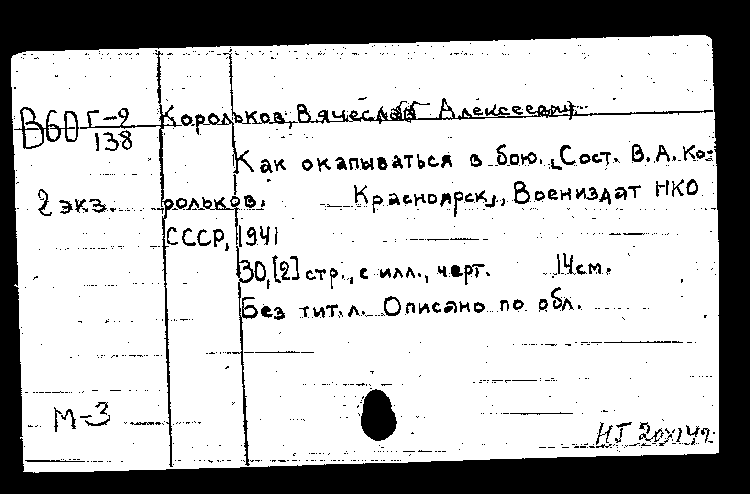 В60 Г-2
138
Корольков, Вячеслав Алексеевич.
Как окапываться в бою. [Сост. В. А. Ко-
2 экз. рольков. Красноярск], Воениздат НКО
СССР, 1941
30, [2] стр., с илл., черт. 14 см.
Без тит. л. Описано по обл.
М-3
НГ